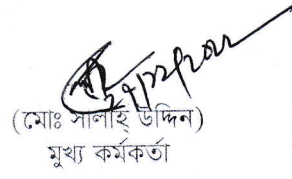 (মোঃ সালাহ্ উদ্দিন)
মুখ্য কর্মকর্তা